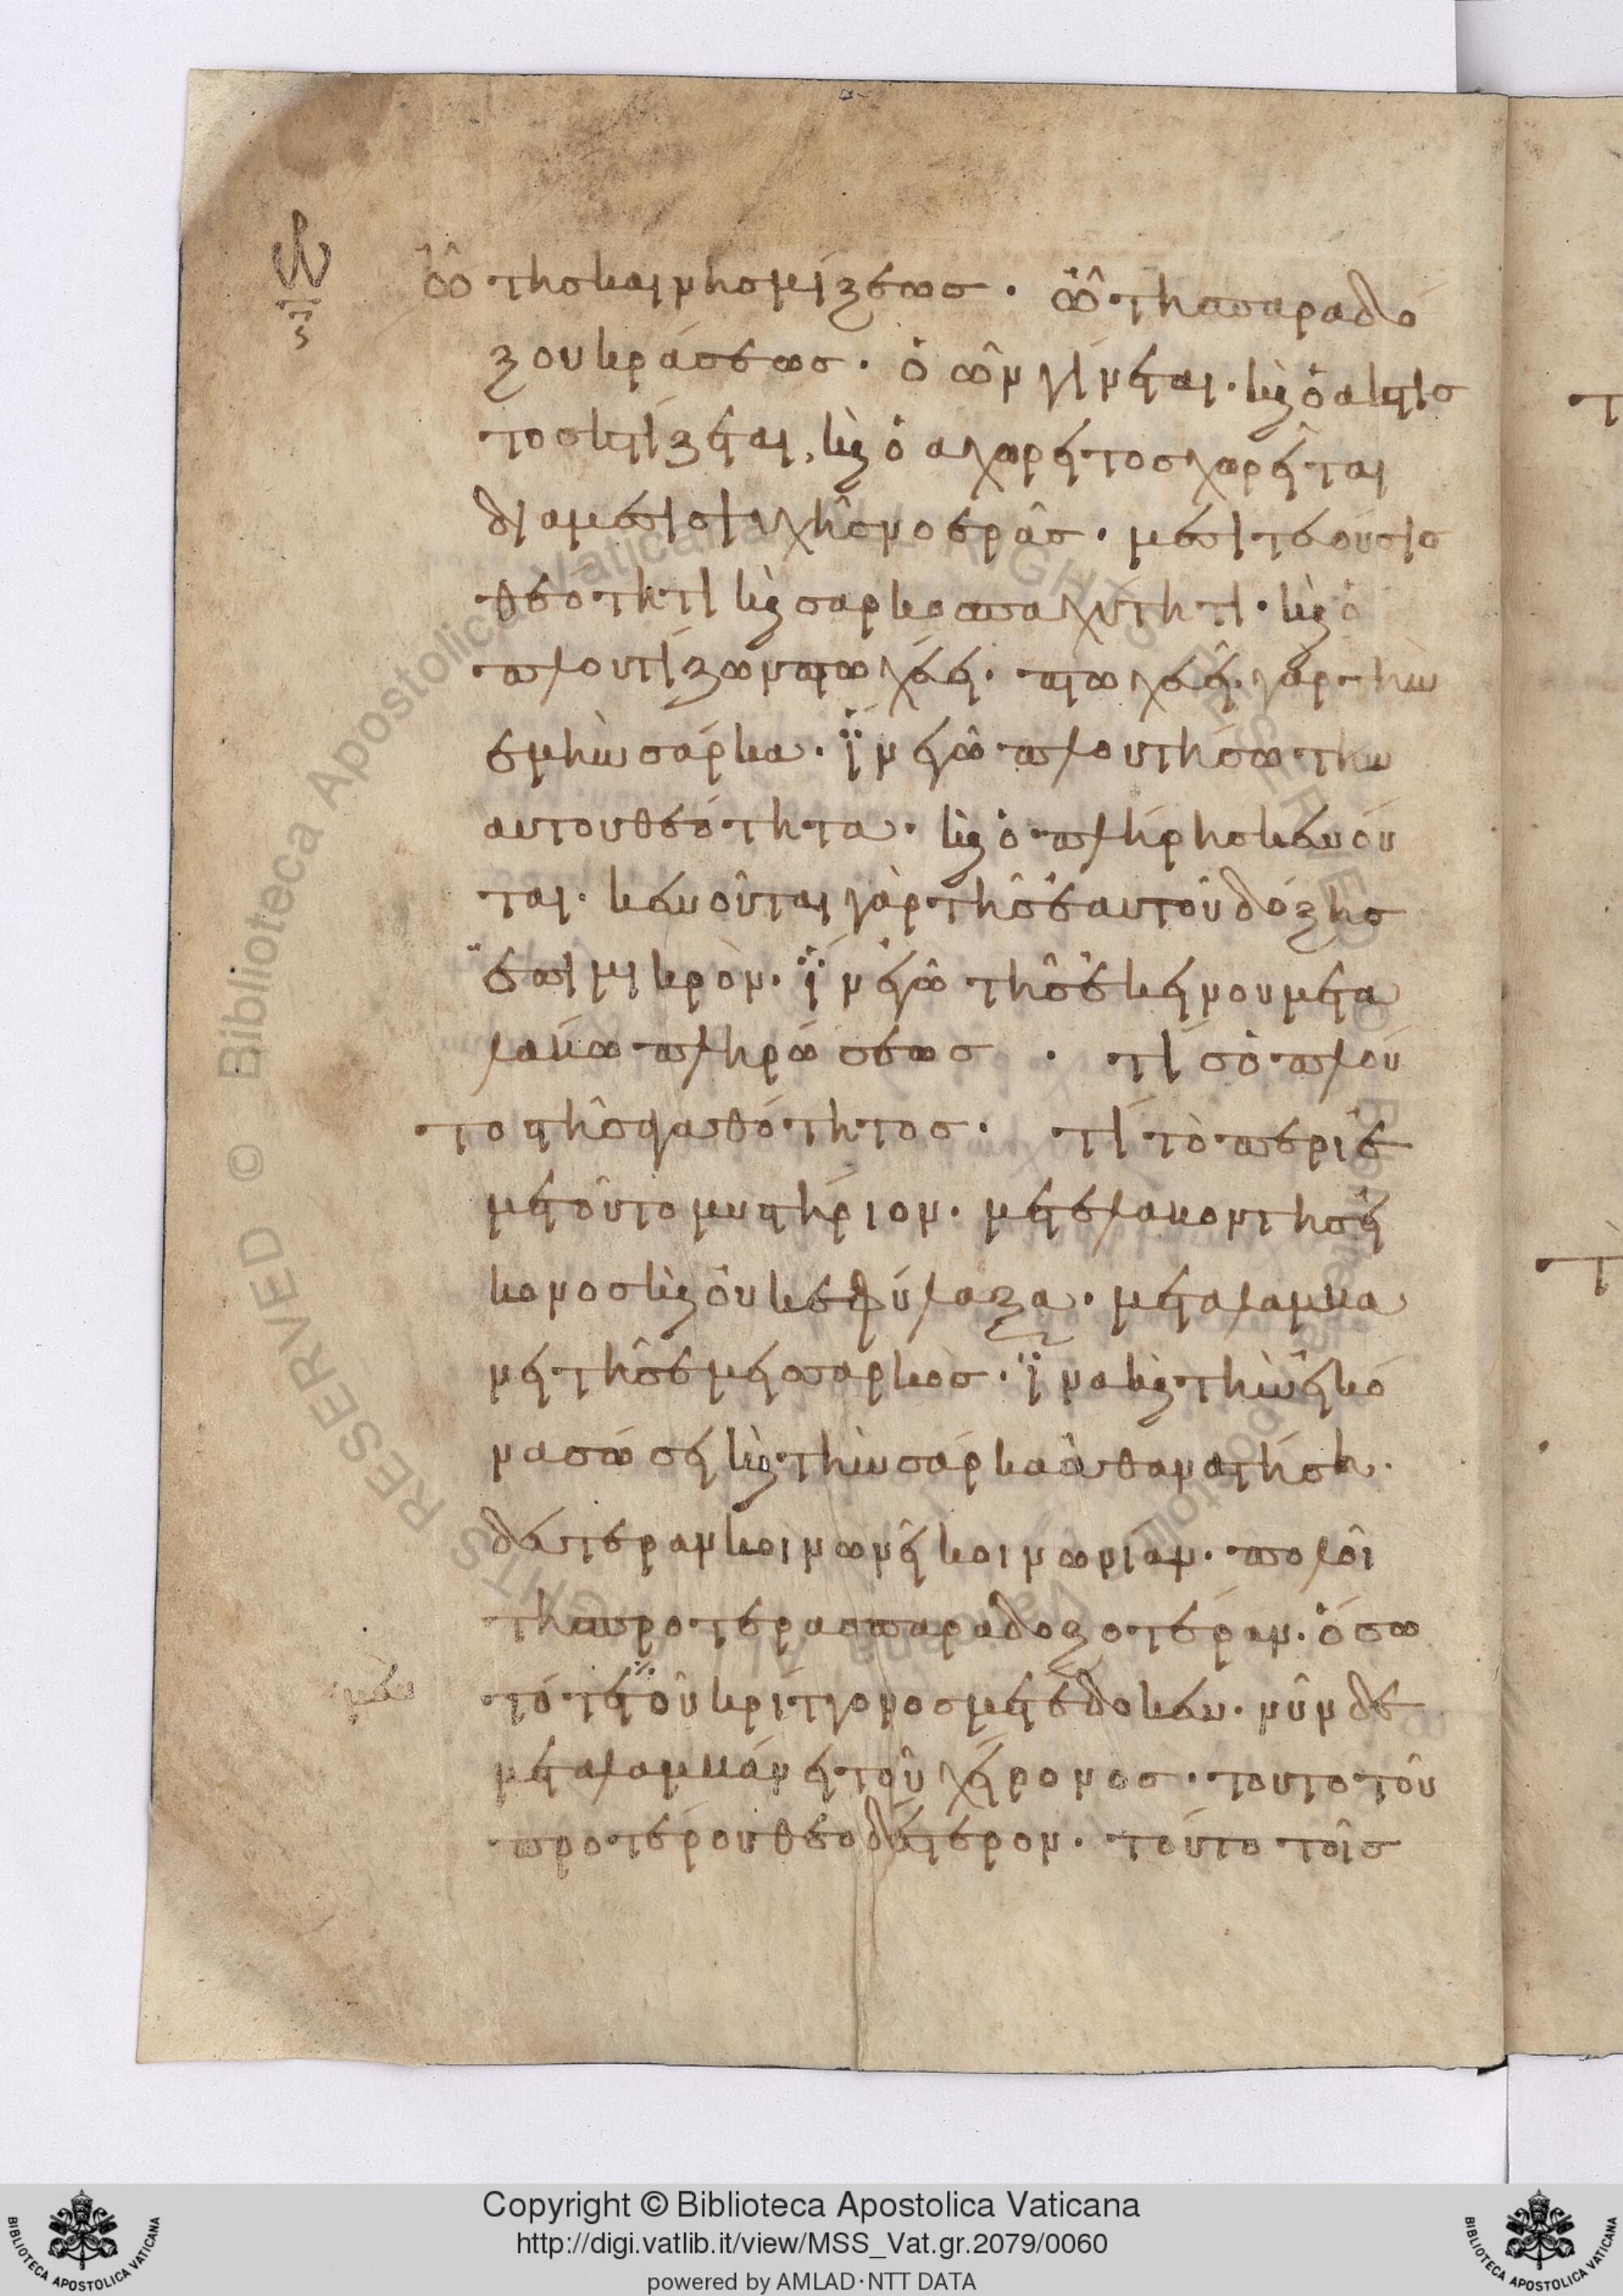 ὢ τησ καινησ μίξεωσ· ὢ τησ παραδό
ξου κράσεωσ· ὁ ὢν γίνεται· κ(αὶ) ὁ ακτισ
τοσ κτίζεται, κ(αὶ) ὁ αχωρητοσ χωρῆται
δια μέσισ ψυχῆσ νοερᾶσ· μεσιτεούσισ
θεότητι κ(αὶ) σαρκοσ παχύτητι· κ(αὶ) ὁ
πλουτίζων πτωχέυει· πτωχέυει γὰρ τὴν
εμὴν σάρκα· ϊν εγὼ πλουτήσω τὴν
αυτου θεότητα· κ(αὶ) ὁ πλήρησ κενόυ
ται· κενοῦται γὰρ τῆσ εαυτοῦ δόξησ
επι μικρὸν· ϊν εγὼ τῆσ ἐκείνου μετα
λάβω πληρώσεωσ· τίσ ὁ πλού
τοσ τῆσ αγαθότητοσ· τί τὸ περι ἐ
μὲ τοῦτο μυστήριον· μετέλαβον τησ εἰ
κονοσ κ(αὶ) οὐκ εφύλαξα· μεταλαμβά
νει τῆσ εμῆσ σαρκὸσ· ϊνα κ(αὶ) τὴν εἰκό
να σώσει κ(αὶ) τὴν σάρκα ἀθανατήση·
δευτεραν κοινωνεῖ κοινωνίαν· πολοὶ
τησ προτερασ παραδοξοτέραν· ὅσω
τότε τοῦ κρίττονοσ μετέδοκεν· νῦν δὲ
μεταλαμβάνει τοῦ χείρονοσ· τουτο τοῦ
προτέρου θεοδέστερον· τούτο τοῖσ